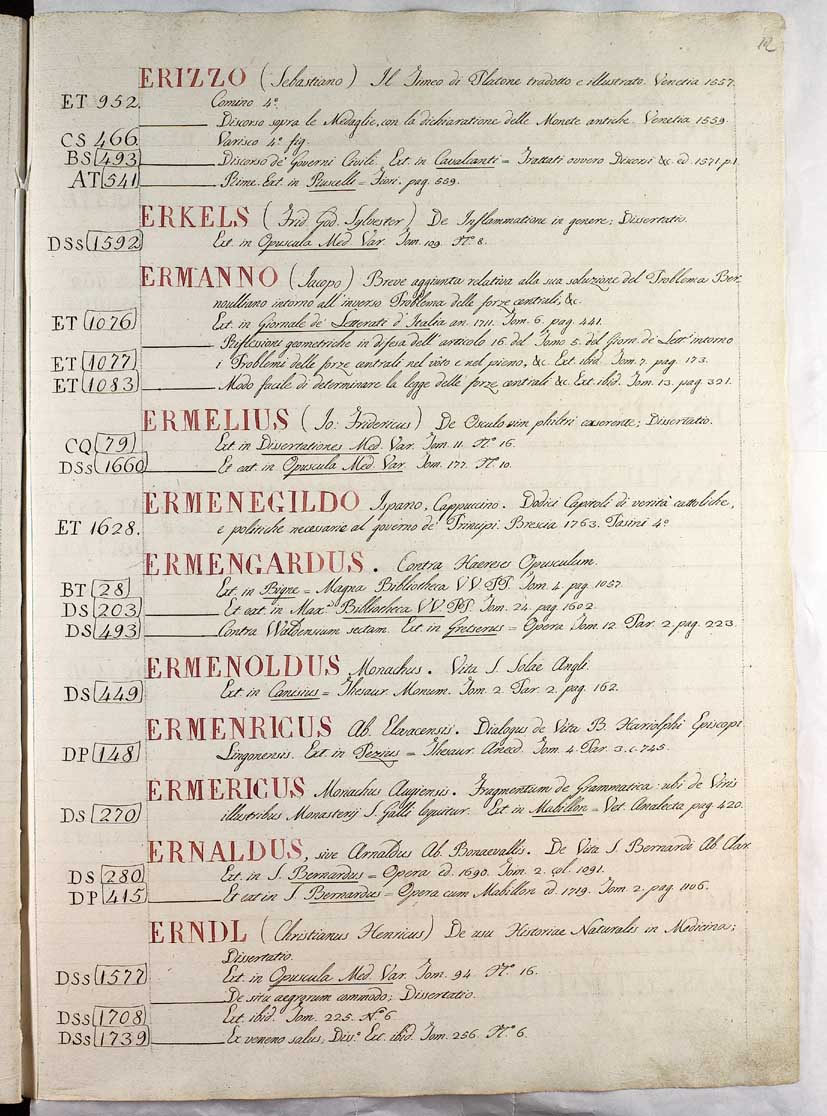 12
ERIZZO (Sebastiano) Il Timeo di Platone tradotto e illustrato. Venetia 1557.
ET 952. Comino 4º.
Discorso sopra le Medaglie, con la dichiaratione delle Monete antiche. Venetia 1559.
CS 466 Varisco 4º fig.
BS 493 Discorso de' Governi Civili. Ext. in Cavalcanti = Trattati ovvero Discorsi &c. ed. 1571 p.1
AT 541 Rime. Ext. in Ruscelli = Fiori. pag. 559.
ERKELS (Frid. God. Sylvester) De Inflammatione in genere; Dissertatio.
DSs 1592 Ext. in Opuscula Med. Var. Tom. 109. Nº 8.
ERMANNO (Iacopo) Breve aggiunta relativa alla sua soluzione del Problema Ber-
noulliano intorno all'inverso Problema delle forze centrali, &c.
ET 1076 Ext. in Giornale de' Letterati d'Italia an. 1711. Tom. 6. pag. 441.
Riflessioni geometriche in difesa dell'articolo 16. del Tomo 5. del Giorn. de' Lett. intorno
ET 1077 i Problemi delle forze centrali nel vòto e nel pieno, &c. Ext. ibid. Tom. 7. pag. 173.
ET 1083 Modo facile di determinare la legge delle forze centrali &c. Ext. ibid. Tom. 13. pag. 321.
ERMELIUS (Io: Fridericus) De Osculo vim philtri exserente; Dissertatio.
CQ 79 Ext. in Dissertationes Med. Var. Tom. 11. Nº 16.
DSs 1660 Et ext. in Opuscula Med. Var. Tom. 177. N. 10.
ERMENEGILDO Ispano, Cappuccino. Dodici Capitoli di verità cattoliche,
ET 1628. e politiche necessarie al governo de' Principi. Brescia 1763. Pasini 4º
ERMENGARDUS. Contra Haereses Opusculum.
BT 28 Ext. in Bigne = Magna Bibliotheca VV. PP. Tom. 4. pag. 1057.
DS 203 Et ext. in Max.ª Bibliotheca VV. PP. Tom. 24. pag. 1602.
DS 493 Contra Waldensium sectam. Ext. in Gretserus = Opera Tom. 12. Par. 2. pag. 223.
ERMENOLDUS Monachus. Vita S. Solae Angli.
DS 449 Ext. in Canisius = Thesaur. Monum. Tom. 2. Par. 2. pag. 162.
ERMENRICUS Ab. Elvacensis. Dialogus de Vita B. Hariolphi Episcopi
DP 148 Lingonensis. Ext. in Pezius = Thesaur. Anecd. Tom. 4. Par. 3. c. 745.
ERMERICUS Monachus Augiensis. Fragmentum de Grammatica: ubi de Viris
DS 270 illustribus Monasterij S. Galli loquitur. Ext. in Mabillon = Vet. Analecta pag. 420.
ERNALDUS, sive Arnaldus Ab. Bonaevallis. De Vita S. Bernardi Ab. Clar.
DS 280 Ext. in S. Bernardus = Opera ed. 1690. Tom. 2. col. 1091.
DP 415 Et ext in S. Bernardus = Opera cum Mabillon ed. 1719. Tom 2. pag 1106.
ERNDL (Christianus Henricus) De usu Historiae Naturalis in Medicina;
Dissertatio.
DSs 1577 Ext. in Opuscula Med. Var. Tom. 94. Nº 16.
De situ aegrorum commodo; Dissertatio.
DSs 1708 Ext. ibid. Tom. 225. Nº 6
DSs 1739 Ex veneno salus; Diss.º Ext. ibid. Tom. 256. Nº 6.